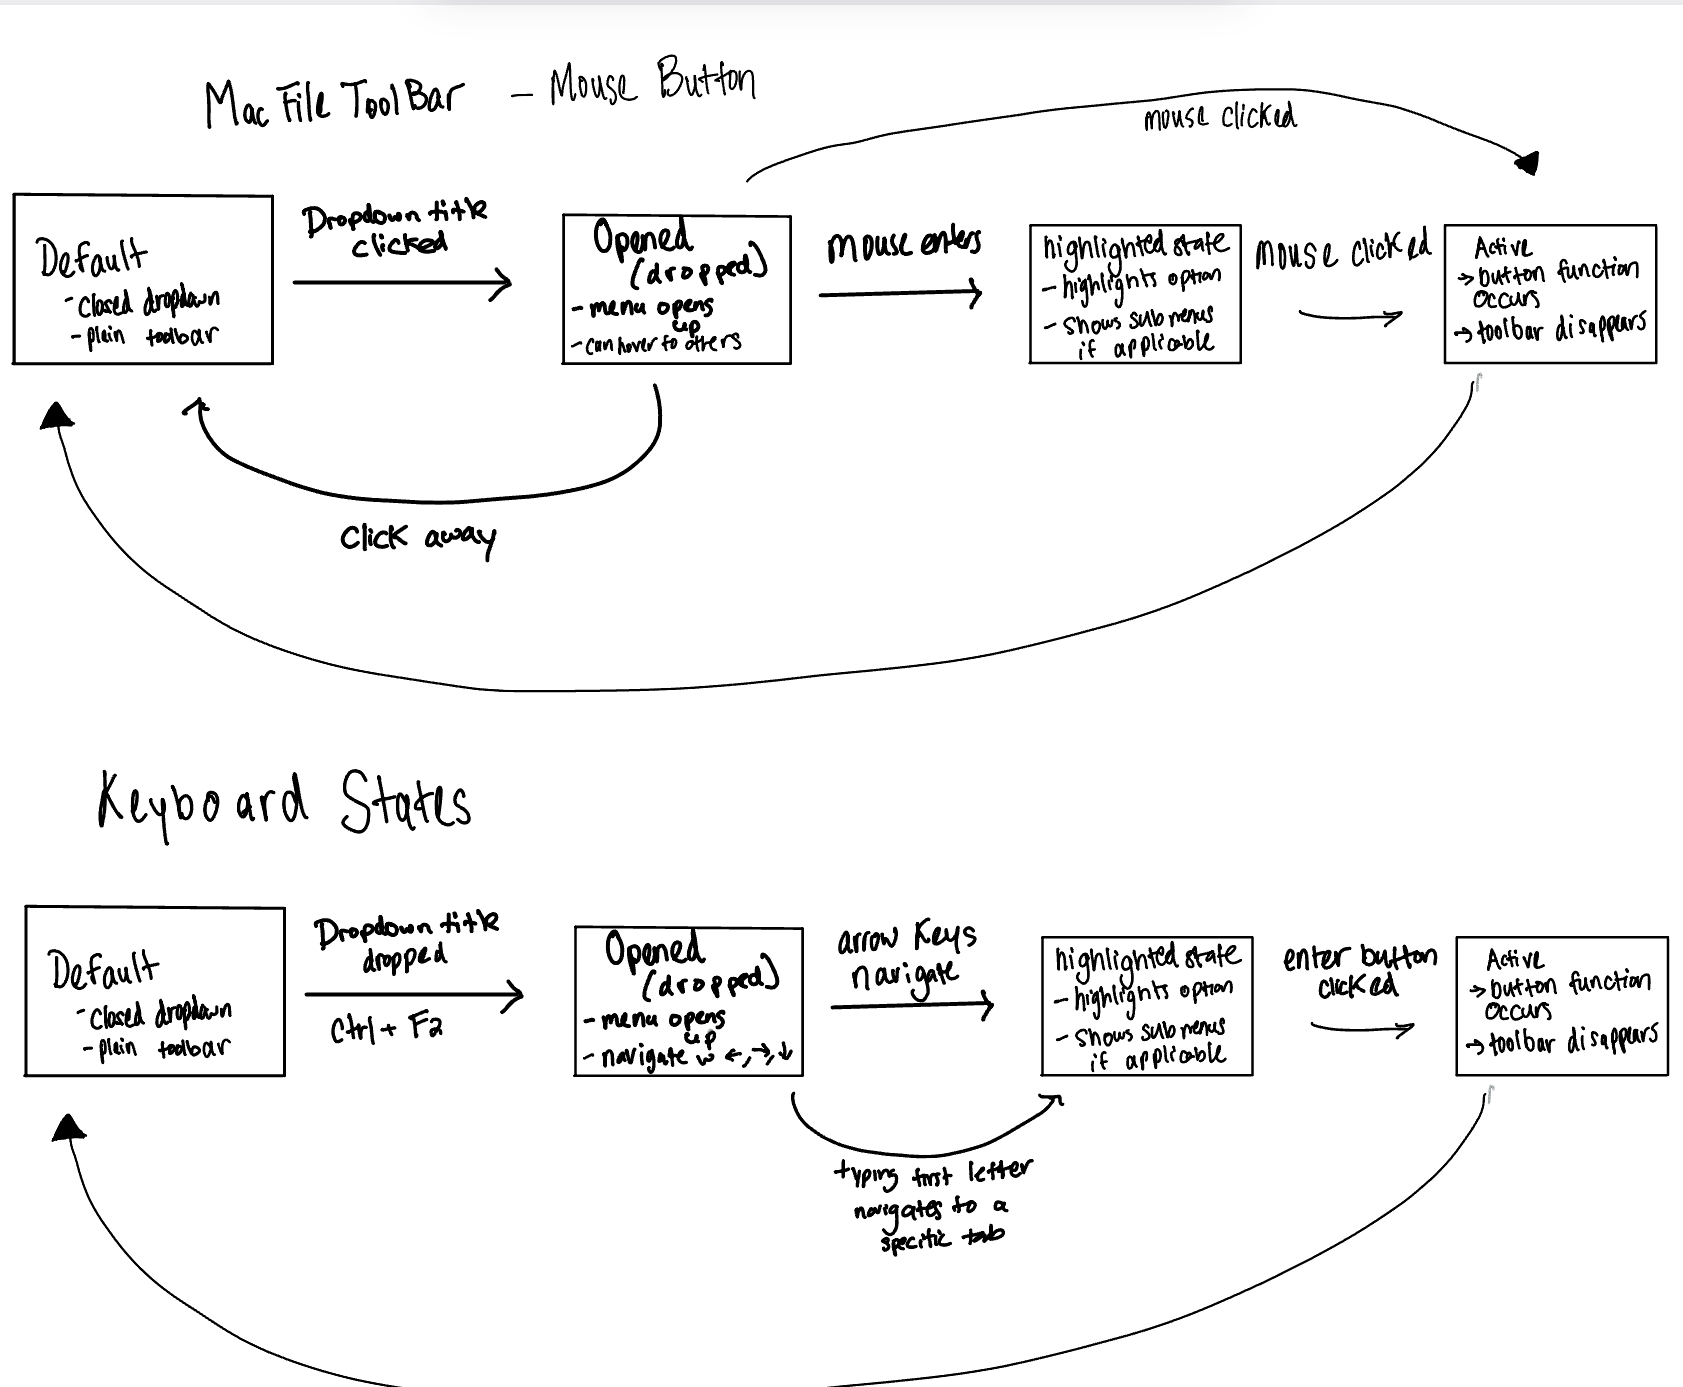 Mac File ToolBar - Mouse Button
mouse clicked
Default
- closed dropdown
- plain toolbar
Dropdown title
clicked
Opened
(dropped)
- menu opens
up
- can hover to others
mouse enters
highlighted state
- highlights option
- shows sub menus
if applicable
mouse clicked
Active
→ button function
occurs
→ toolbar disappears
click away
Keyboard States
Default
- closed dropdown
- plain toolbar
Dropdown title
dropped
Ctrl + F2
Opened
(dropped)
- menu opens
up
- navigate w ←, →, ↓
arrow keys
navigate
highlighted state
- highlights option
- shows sub menus
if applicable
enter button
clicked
Active
→ button function
occurs
→ toolbar disappears
typing first letter
navigates to a
specific tab